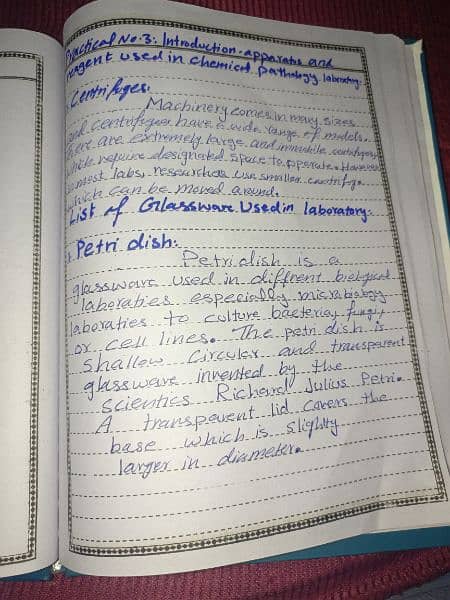 Practical No.3: Introduction. apparatus and
reagent used in chemical pathology laboratory.
Centrifuges.
Machinery comes in many sizes
and centrifuges have a wide range of models.
There are extremely large and immobile centrifuges
which require designated space to pperate. However
most labs, researchers use smaller
which can be moved around.
List of Glassware Used in laboratory:
Petri dish:
Petri dish is a
glassware used in diffrent biological
laboraties especially microbiology
laboraties to culture bacteria, fungi,
or cell lines. The petri dish is
Shallow Circular and transperent
glassware invented by the
scientics Richard Julius Petri.
A transperent lid covers the
base which is slighty
larger in diameter.